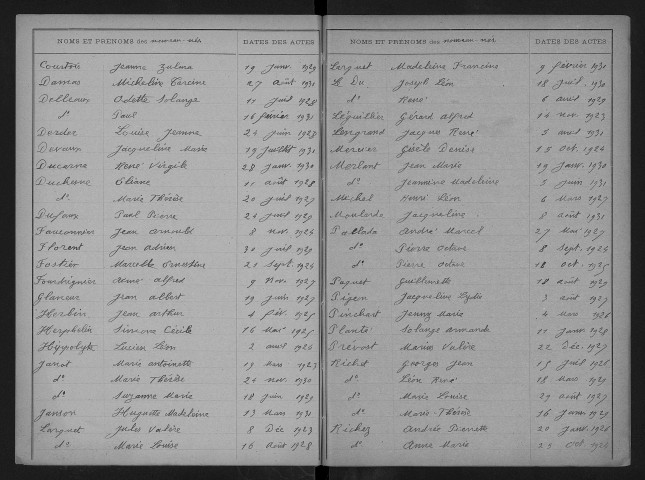 NOMS ET PRÉNOMS des nouveau-nés DATES DES ACTES
Courtois Jeanne Zulma 19 Janv. 1929
Damas Micheline Carême 27 août 1931
Delleaux Odette Solange 11 Juil 1928
do Paul 16 février 1931
Desder Louise Jeanne 24 juin 1928
Devaux Jacqueline Marie 19 Juillet 1931
Ducarne René Virgile 28 Janv. 1930
Duchesne Eliane 11 août 1928
do Marie Thérèse 20 Juil 1927
Dufaux Paul Pierre 24 Juil 1929
Fauconnier Jean Arnould 8 nov. 1924
Florent Jean Adrien 30 Juil 1929
Fostier Marcelle Ernestine 21 Sept. 1924
Foudrignier Rémi Alfred 9 Nov. 1927
Glaneur Jean Albert 19 juin 1927
Herbin Jean Arthur 4 fév. 1925
Herphelin Simone Cécile 16 Mai 1925
Hyppolyte Lucien Léon 2 avril 1926
Janot Marie Antoinette 19 Mars 1923
do Marie Thérèse 24 nov. 1930
do Suzanne Marie 18 Juin 1929
Janson Huguette Madeleine 13 Mars 1931
Larguet Jules Valère 8 Déc 1923
do Marie Louise 16 Août 1928
NOMS ET PRÉNOMS des nouveau-nés DATES DES ACTES
Larguet Madeleine Francine 9 février 1931
Le Du Joseph Léon 18 Juil. 1930
do René 6 avril 1929
Léguillier Gérard Alfred 14 nov. 1923
Lengrand Jacques René 5 avril 1931
Mercier Gisèle Denise 15 Oct 1924
Morlant Jean Marie 19 Janv 1930
do Jeannine Madeleine 5 Juin 1931
Michel Henri Léon 6 Mars 1927
Moularde Jacqueline 8 août 1931
Pallada André Marcel 27 Mai 1927
do Pierre Octave 8 Sept. 1924
do Pierre Octave 18 Oct. 1925
Paquet Guillemette 18 août 1927
Pigen Jacqueline Lydie 3 août 1927
Pinchart Jenny Marie 4 Mars 1926
Planté Solange Armande 11 Janv 1928
Prévost Marius Valère 22 Déc. 1927
Richet Georges Jean 15 Juil 1926
do Léon René 18 Mars 1929
do Marie Louise 29 août 1927
do Marie-Thérèse 16 Janv. 1929
Richez Andrée Pierrette 20 Janv. 1926
do Anne Marie 25 Oct.